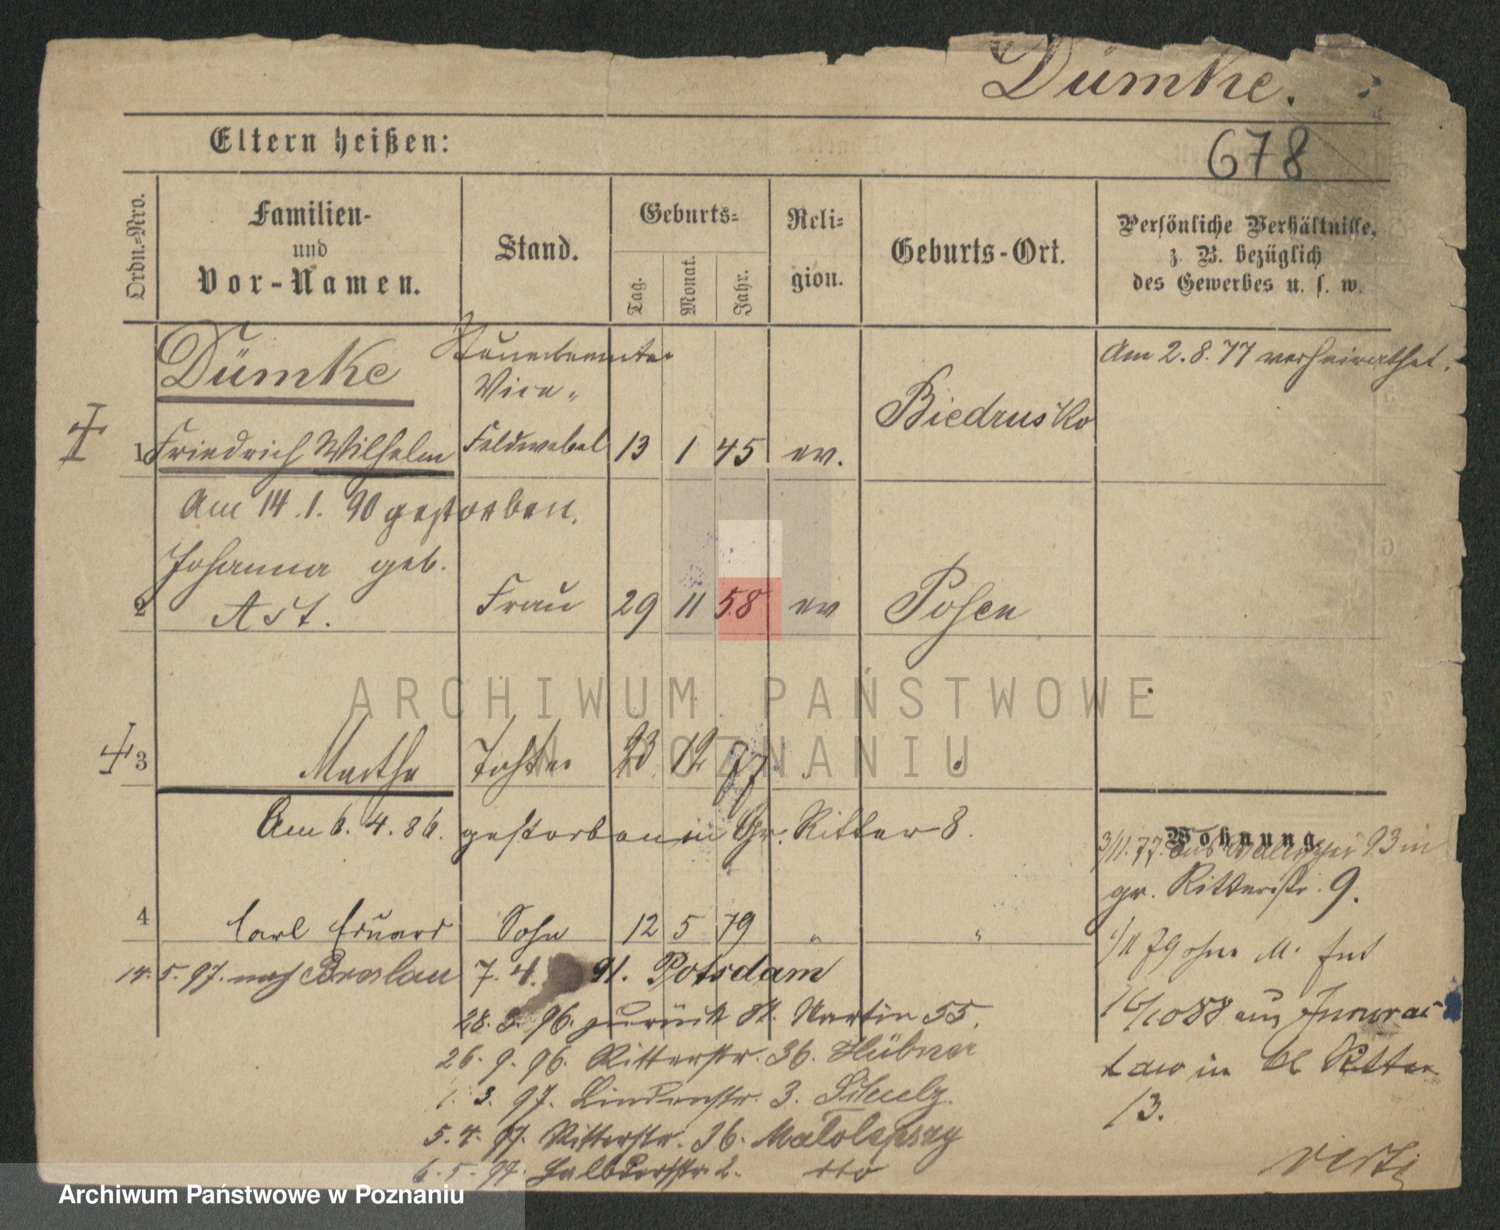 Dümke.
Eltern heißen:
678
Ordn.=Nro.
Familien-
und
Vor-Namen.
Stand.
Geburts=
Tag.
Monat.
Jahr.
Reli=
gion.
Geburts-Ort.
Persönliche Verhältnisse,
z. B. bezüglich
des Gewerbes u. s. w.
Dümke
Steuerbeamter
Vice-
Am 2.8.77 verheirathet.
1 Friedrich Wilhelm Feldwebel 13 1 45 ev. Biedrusko
Am 14.1.90 gestorben.
Johanna geb.
2 Ast. Frau 29 11 58 ev Posen
ARCHIWUM PAŃSTWOWE
W POZNANIU
3 Martha Tochter 23 12 77
Am 6.4.86. gestorben in Gr. Ritter 8.
Wohnung.
3/11.77. aus 93 in
gr. Ritterstr. 9.
4 Carl Eduard Sohn 12 5 79 " "
79 ohne M.
14.5.97. nach Breslau 7.4. 91. Potsdam
28.3.96. zurück St. Martin 55.
26.9.96. Ritterstr. 36. Hübner
1.3.97. Lindenstr. 3. Schulz.
5.4.97. Ritterstr. 36.
6.5.97. Halbdorfstr 2. dto
16/10 88 aus Inowraz
law in kl Ritter
13.
verti
Archiwum Państwowe w Poznaniu